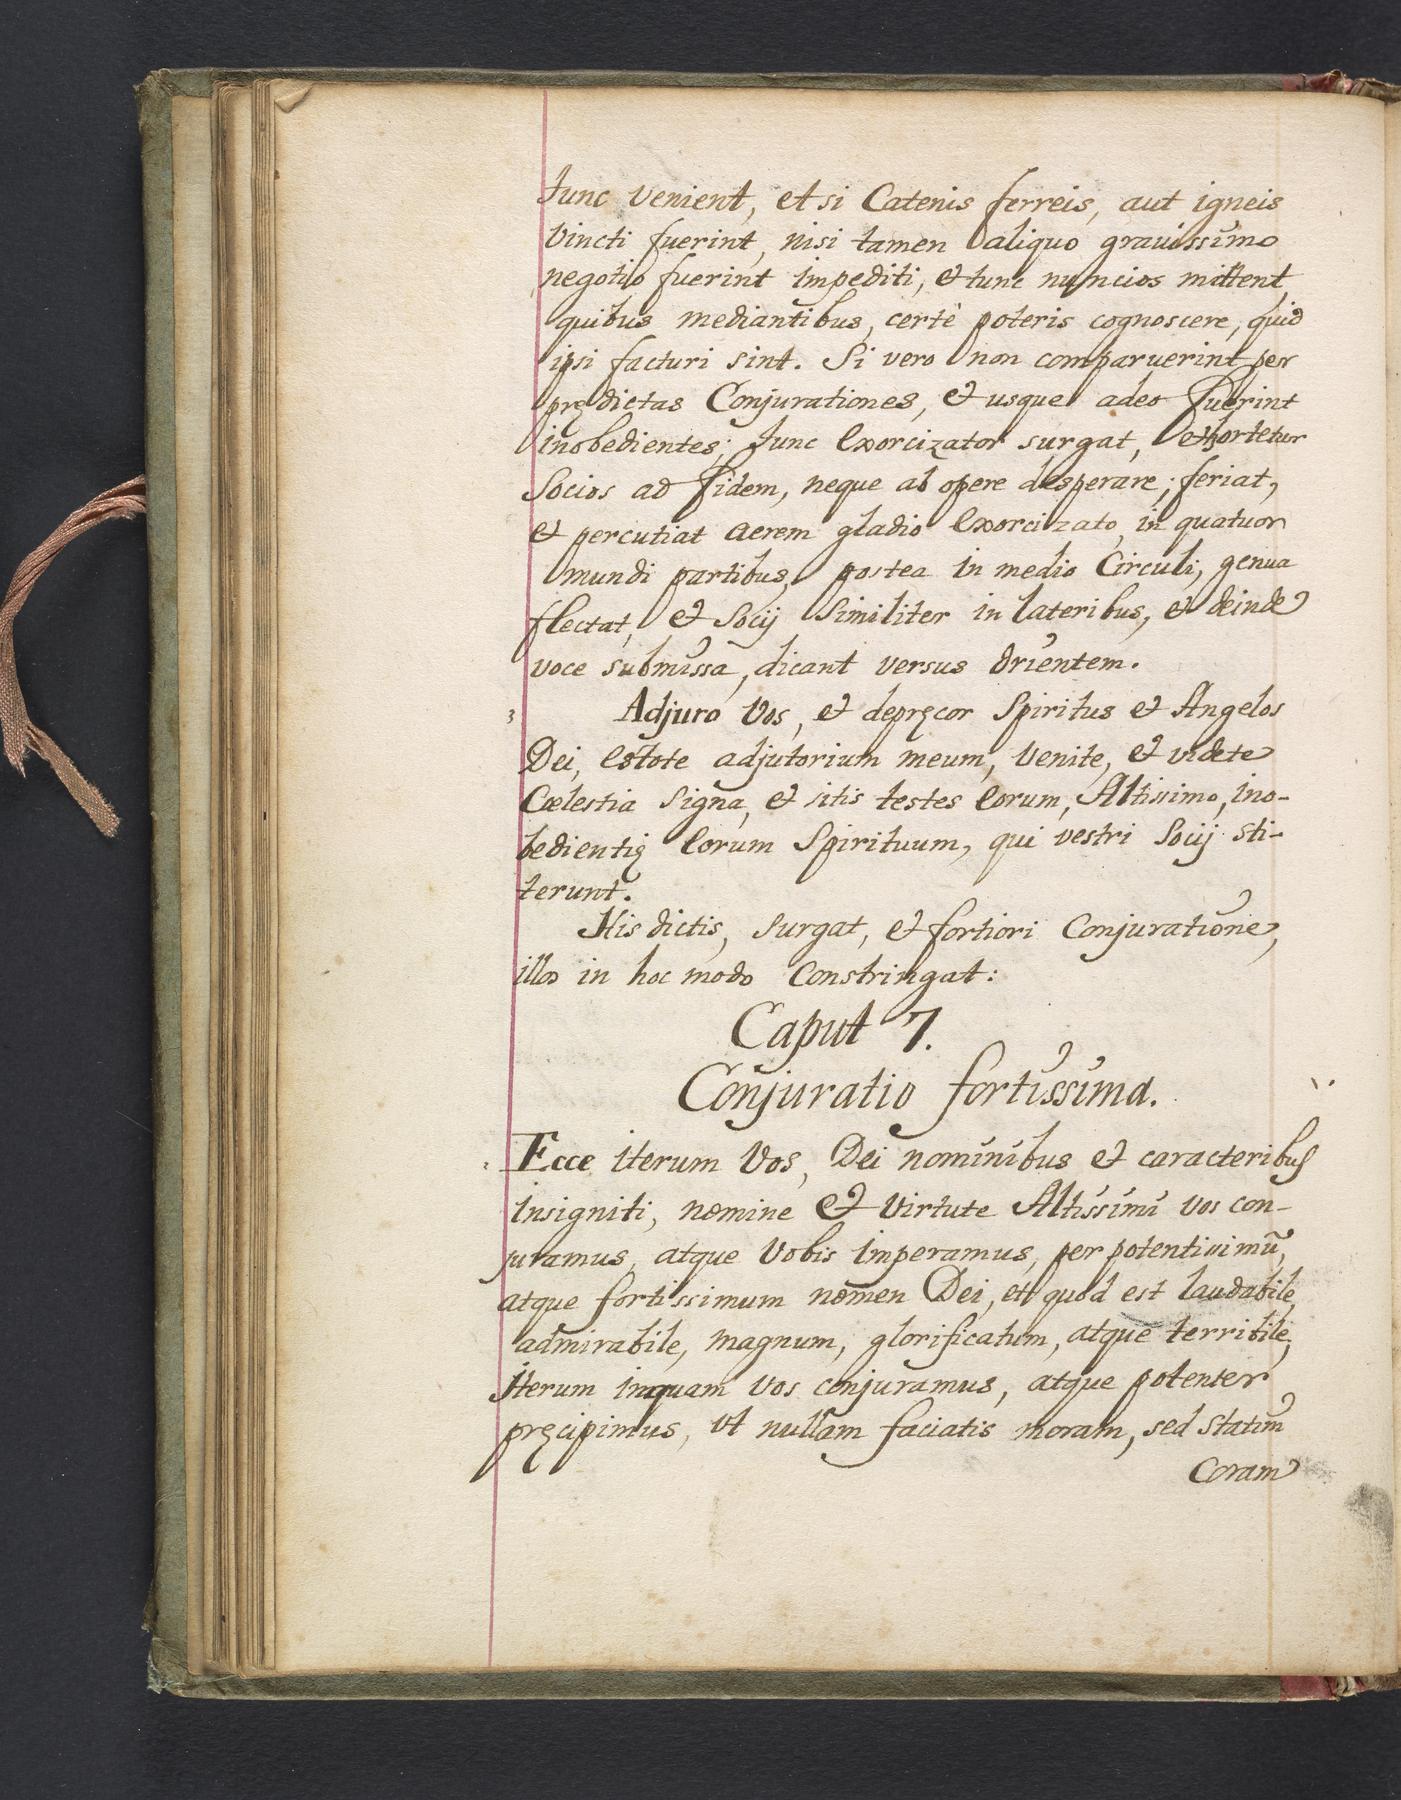 tunc venient, et si Catenis ferreis, aut igneis
vincti fuerint, nisi tamen aliquo gravissimo
negotio fuerint impediti, et tunc nuncios mittent
quibus mediantibus, certè poteris cognoscere, quid
ipsi facturi sint. Si vero non comparuerint per
prędictas Conjurationes, et usque adeo fuerint
inobedientes; tunc Exorcizator surgat, exhortetur
Socios ad fidem, neque ab opere desperare; feriat,
et percutiat aerem gladio Exorcizato, in quatuor
mundi partibus, postea in medio Circuli, genua
flectat, et Socij similiter in lateribus, et deinde
voce submissa, dicant versus Orientem.
Adjuro Vos, et depręcor Spiritus et Angelos
Dei, Estote adjutorium meum, Venite, et videte
Cœlestia Signa, et sitis testes Eorum, Altissimo, ino-
bedientię Eorum Spirituum, qui vestri Socij sti-
terunt.
His dictis, surgat, et fortiori Conjuratione,
illos in hoc modo Constringat:
Caput 7.
Conjuratio fortissima.
Ecce iterum Vos, Dei nominibus et caracteribus
insigniti, nomine et Virtute Altissimi vos con-
juramus, atque Vobis imperamus, per potentissimū,
atque fortissimum nomen Dei, et quod est laudabile,
admirabile, magnum, glorificatum, atque terribile,
iterum inquam vos conjuramus, atque potenter
pręcipimus, ut nullam faciatis moram, sed statim
Coram